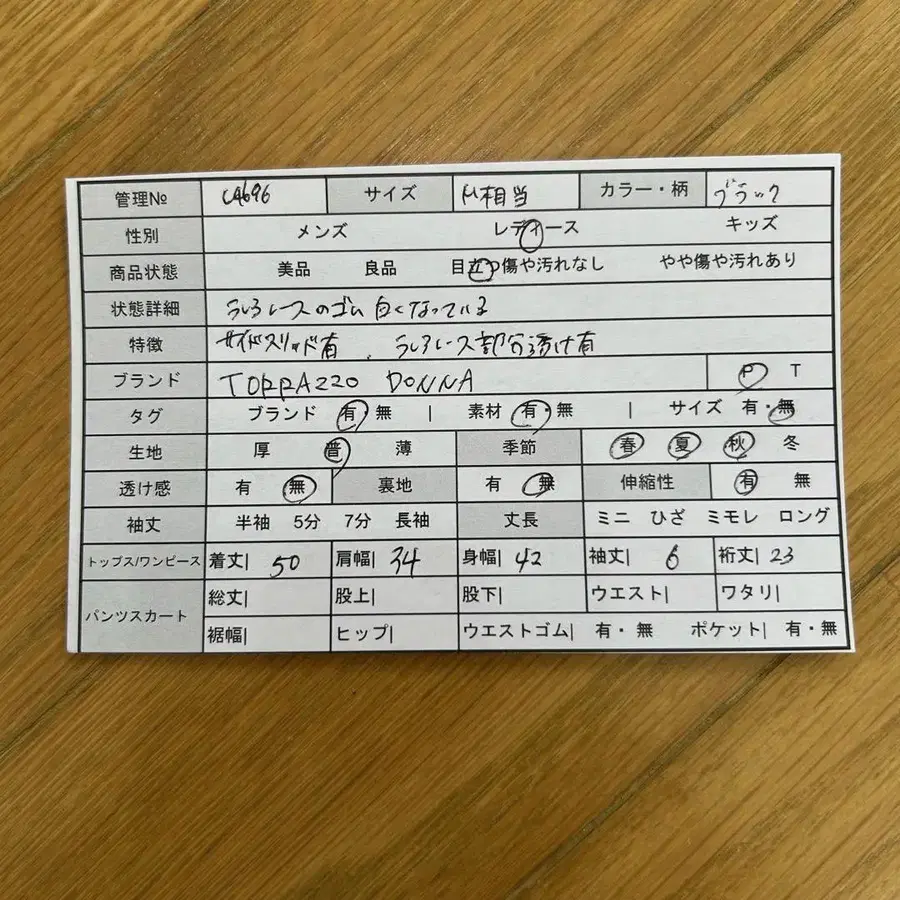 管理№ C4696 サイズ M相当 カラー・柄 ブラック
性別 メンズ レディース キッズ
商品状態 美品 良品 目立つ傷や汚れなし やや傷や汚れあり
状態詳細 うしろレースのゴム 白くなっている
特徴 サイドスリッド有 、 うしろレース部分透け有
ブランド TORRAZZO DONNA P T
タグ ブランド 有・無 | 素材 有・無 | サイズ 有・無
生地 厚 普 薄 季節 春 夏 秋 冬
透け感 有 無 裏地 有 無 伸縮性 有 無
袖丈 半袖 5分 7分 長袖 丈長 ミニ ひざ ミモレ ロング
トップス/ワンピース 着丈| 50 肩幅| 34 身幅| 42 袖丈| 6 裄丈| 23
パンツスカート 総丈| 股上| 股下| ウエスト| ワタリ|
裾幅| ヒップ| ウエストゴム| 有・無 ポケット| 有・無